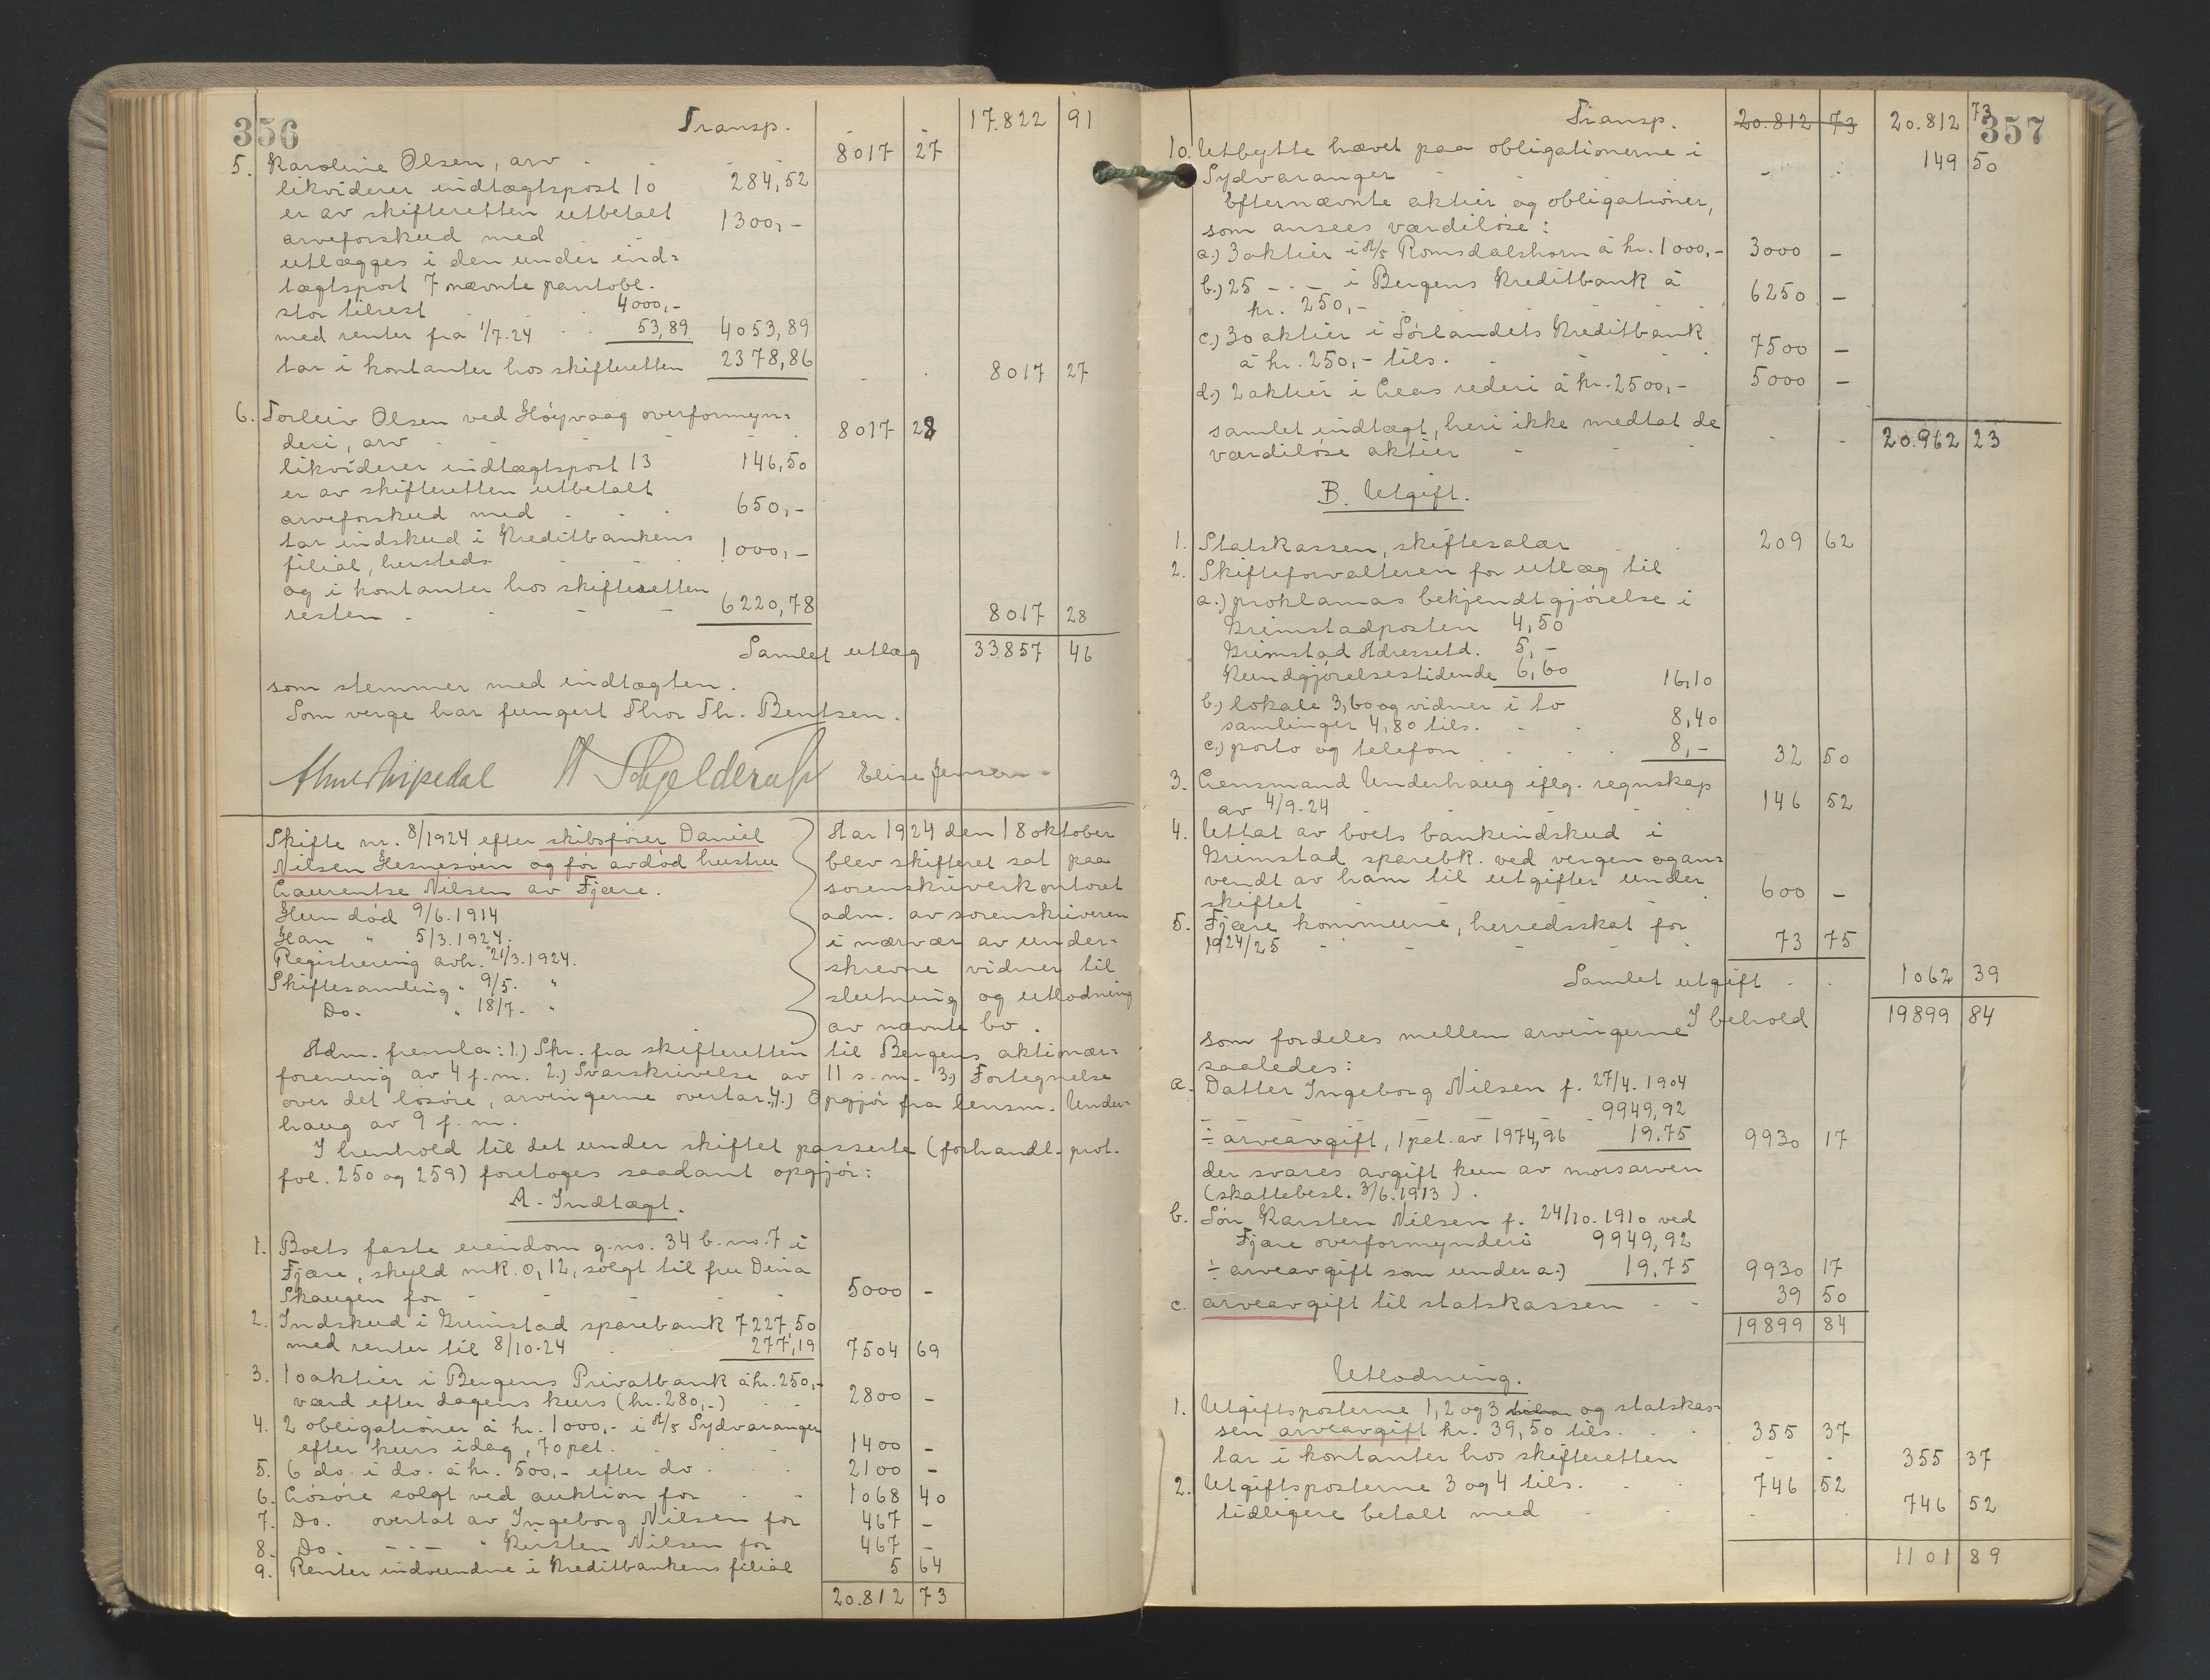 356
Transp. 17.822 91
5. Karoline Olsen, arv 8017 27
likviderer indtægtspost 10 284,52
er av skifteretten utbetalt
arveforskud med 1300,-
utlægges i den under ind-
tægtspost 7 nævnte pantobl.
stor tilrest 4000,-
med renter fra 1/7.24 53,89 4053,89
tar i kontanter hos skifteretten 2378,86 8017 27
6. Torleiv Olsen ved Høivaag overformyn-
deri, arv 8017 28
likviderer indtægtspost 13 146,50
er av skifteretten utbetalt
arveforskud med 650,-
tar indskud i Kreditbankens
filial, hersteds 1000,-
og i kontanter hos skifteretten
resten 6220,78 8017 28
Samlet utlæg 33857 46
som stemmer med indtægten.
Som verge har fungert Thor Th. Bentsen.
Elise Jensen
Skifte nr. 8/1924 efter skibsfører Daniel
Nilsen Hesnesøen og før avdød hustru
Laurentse Nilsen av Fjære.
Hun død 9/6.1914
Han " 5/3.1924.
Registrering avh. 21/3.1924.
Skiftesamling " 9/5. "
Do. " 18/7. "
Aar 1924 den 18 oktober
blev skifteret sat paa
sorenskriverkontoret
adm. av sorenskriveren
i nærvær av under-
skrevne vidner til
slutning og utlodning
av nævnte bo.
Adm. fremla: 1.) Skr. fra skifteretten til Bergens aktionær-
forening av 4 f.m. 2.) Svarskrivelse av 11 s.m. 3.) Fortegnelse
over det løsøre, arvingerne overtar. 4.) Opgjør fra lensm. Under-
haug av 9 f.m.
I henhold til det under skiftet passerte (forhandl. prot.
fol. 250 og 259) foretoges saadant opgjør:
A. Indtægt.
1. Boets faste eiendom g.no. 34 b.no. 7 i
Fjære, skyld mk. 0,12, solgt til fru Dina
Skaugen for 5000 -
2. Indskud i Grimstad sparebank 7227,50
med renter til 8/10.24 277,19 7504 69
3. 10 aktier i Bergens Privatbank à kr. 250,-
værd efter dagens kurs (kr. 280,-) 2800 -
4. 2 obligationer à kr. 1000,- i A/S Sydvaranger
efter kurs idag, 70 pct. 1400 -
5. 6 do. i do. à kr. 500,- efter do. 2100 -
6. Løsøre solgt ved auktion for 1068 40
7. Do. overtat av Ingeborg Nilsen for 467 -
8. Do. -"- " Karsten Nilsen for 467 -
9. Renter indvundne i Kreditbankens filial 5 64
20.812 73
357
Transp. 20.812 73 20.812 73
10. Utbytte hævet paa obligationerne i
Sydvaranger 149 50
Efternævnte aktier og obligationer,
som ansees værdiløse:
a.) 3 aktier i A/S Romsdalshorn à kr. 1000,- 3000 -
b.) 25 -"- i Bergens Kreditbank à
kr. 250,- 6250 -
c.) 30 aktier i Sørlandets Kreditbank
à kr. 250,- tils. 7500 -
d.) 2 aktier i Leas rederi à kr. 2500,- 5000 -
samlet indtægt, heri ikke medtat de
værdiløse aktier 20.962 23
B. Utgift.
1. Statskassen, skiftesalær 209 62
2. Skifteforvalteren for utlæg til
a.) proklamas bekjendtgjørelse i
Grimstadposten 4,50
Grimstad Adressetd. 5,-
Kundgjørelsestidende 6,60 16,10
b.) lokale 3,60 og vidner i to
samlinger 4,80 tils. 8,40
c.) porto og telefon 8,- 32 50
3. Lensmand Underhaug iflg. regnskap
av 4/9.24 146 52
4. Uttat av boets bankindskud i
Grimstad sparebk. ved vergen og an-
vendt av ham til utgifter under
skiftet 600 -
5. Fjære kommune, herredsskat for
1924/25 73 75
Samlet utgift 1062 39
I behold 19899 84
som fordeles mellem arvingerne
saaledes:
a. Datter Ingeborg Nilsen f. 27/4. 1904
9949,92
÷ arveavgift, 1 pct. av 1974,96 19.75 9930 17
der svares avgift kun av morsarven
(skattebesl. 3/6.1913).
b. Søn Karsten Nilsen f. 24/10.1910 ved
Fjære overformynderi 9949,92
÷ arveavgift som under a.) 19,75 9930 17
c. arveavgift til statskassen 39 50
19899 84
Utlodning.
1. Utgiftsposterne 1, 2 og 3 og statskas-
sen arveavgift kr. 39,50 tils. 355 37
tar i kontanter hos skifteretten 355 37
2. Utgiftsposterne 3 og 4 tils. 746 52
tidligere betalt med 746 52
1101 89